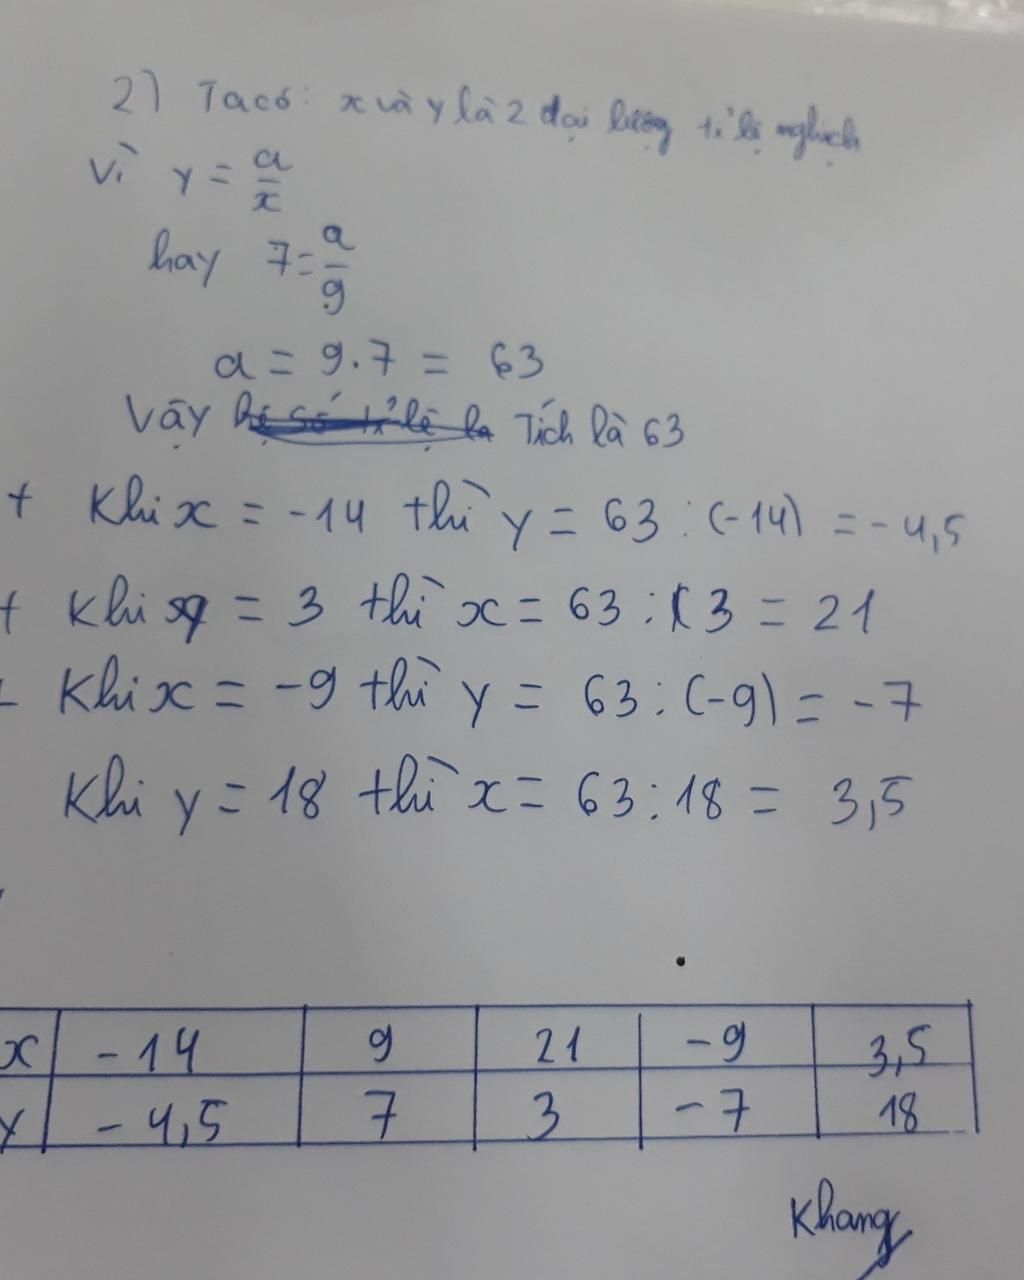 2) Ta có: x và y là 2 đại lượng tỉ lệ nghịch
Vì y = a/x
hay 7 = a/9
a = 9.7 = 63
Vậy hệ số tỉ lệ là Tích là 63
+ Khi x = -14 thì y = 63 : (-14) = -4,5
+ Khi y = 3 thì x = 63 : 3 = 21
+ Khi x = -9 thì y = 63 : (-9) = -7
Khi y = 18 thì x = 63 : 18 = 3,5
x -14 9 21 -9 3,5
y -4,5 7 3 -7 18
Khang